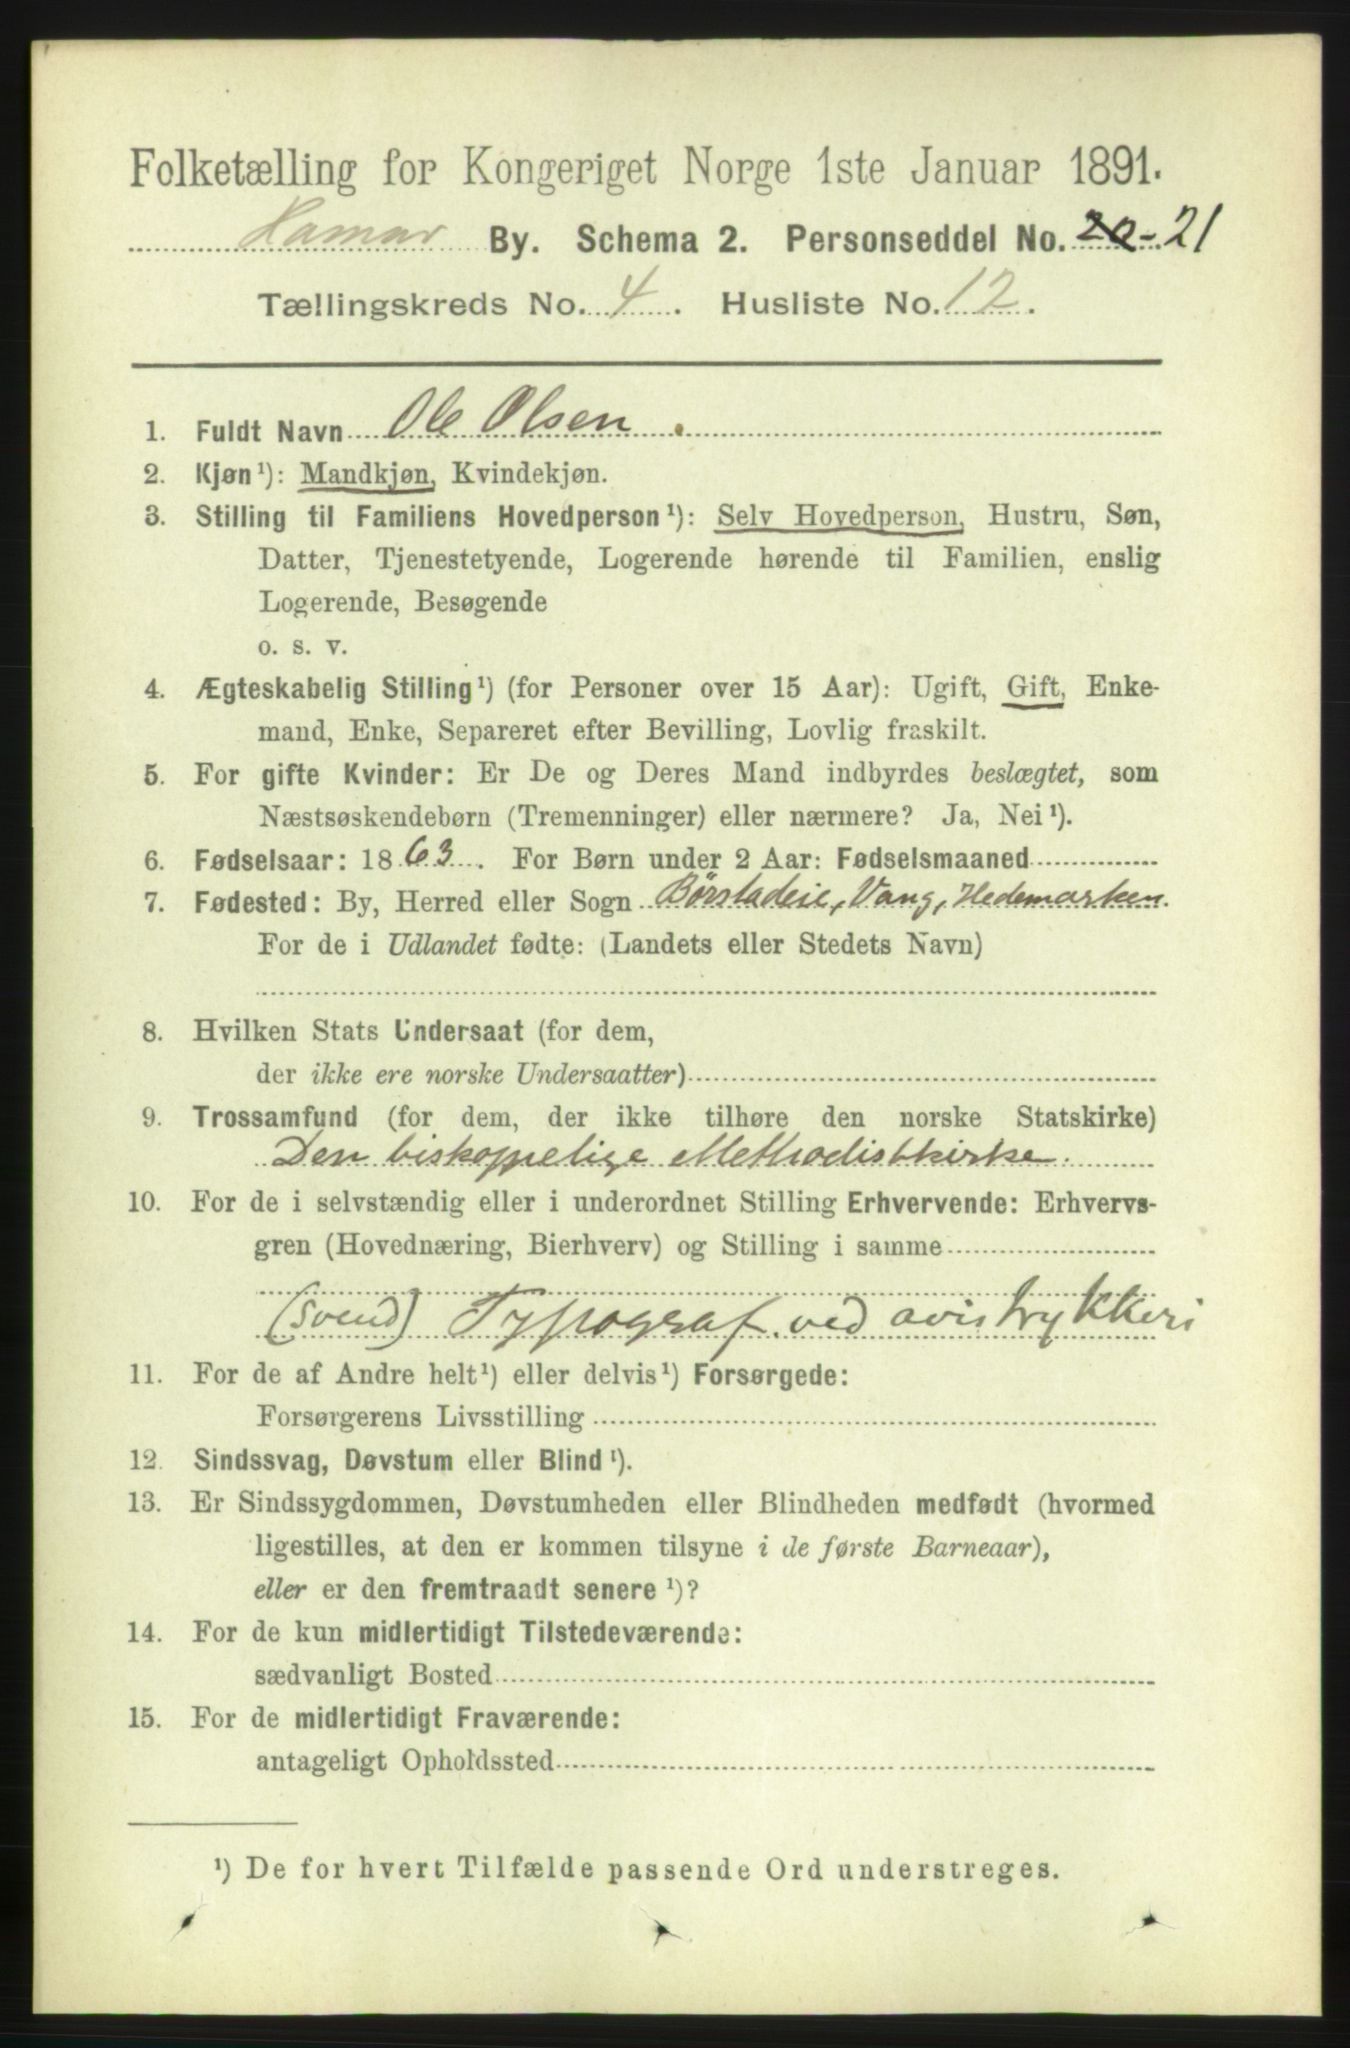 Folketælling for Kongeriget Norge 1ste Januar 1891.
Hamar By. Schema 2. Personseddel No. 20-21
Tællingskreds No. 4. Husliste No. 12.
1. Fuldt Navn Ole Olsen.
2. Kjøn¹): Mandkjøn, Kvindekjøn.
3. Stilling til Familiens Hovedperson¹): Selv Hovedperson, Hustru, Søn,
Datter, Tjenestetyende, Logerende hørende til Familien, enslig
Logerende, Besøgende
o. s. v.
4. Ægteskabelig Stilling¹) (for Personer over 15 Aar): Ugift, Gift, Enke-
mand, Enke, Separeret efter Bevilling, Lovlig fraskilt.
5. For gifte Kvinder: Er De og Deres Mand indbyrdes beslægtet, som
Næstsøskendebørn (Tremenninger) eller nærmere? Ja, Nei¹).
6. Fødselsaar: 1863. For Børn under 2 Aar: Fødselsmaaned
7. Fødested: By, Herred eller Sogn Børstadeie, Vang, Hedemarken.
For de i Udlandet fødte: (Landets eller Stedets Navn)
8. Hvilken Stats Undersaat (for dem,
der ikke ere norske Undersaatter)
9. Trossamfund (for dem, der ikke tilhøre den norske Statskirke)
Den biskoppelige Methodistkirke.
10. For de i selvstændig eller i underordnet Stilling Erhvervende: Erhvervs-
gren (Hovednæring, Bierhverv) og Stilling i samme
(svend) Typograf ved avistrykkeri
11. For de af Andre helt¹) eller delvis¹) Forsørgede:
Forsørgerens Livsstilling
12. Sindssvag, Døvstum eller Blind¹).
13. Er Sindssygdommen, Døvstumheden eller Blindheden medfødt (hvormed
ligestilles, at den er kommen tilsyne i de første Barneaar),
eller er den fremtraadt senere¹)?
14. For de kun midlertidigt Tilstedeværende:
sædvanligt Bosted
15. For de midlertidigt Fraværende:
antageligt Opholdssted
¹) De for hvert Tilfælde passende Ord understreges.